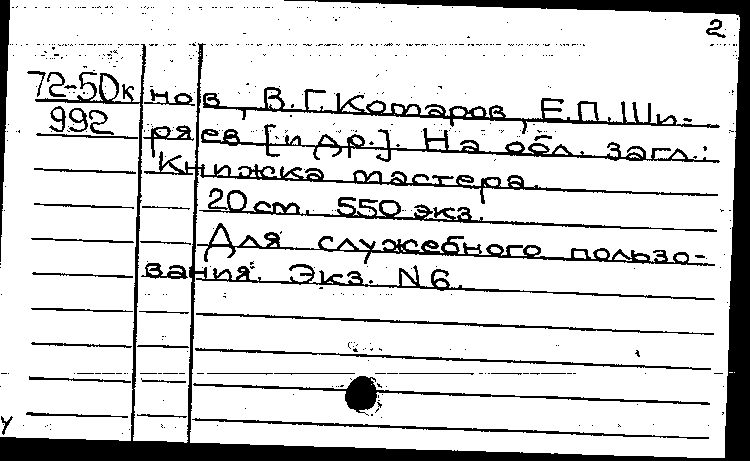 2
72-50к нов, В.Г.Комаров, Е.П.Ши-
992 ряев [и др.]. На обл. загл.:
Книжка мастера.
20 cm. 550 экз.
Для служебного пользо-
вания. Экз. N6.